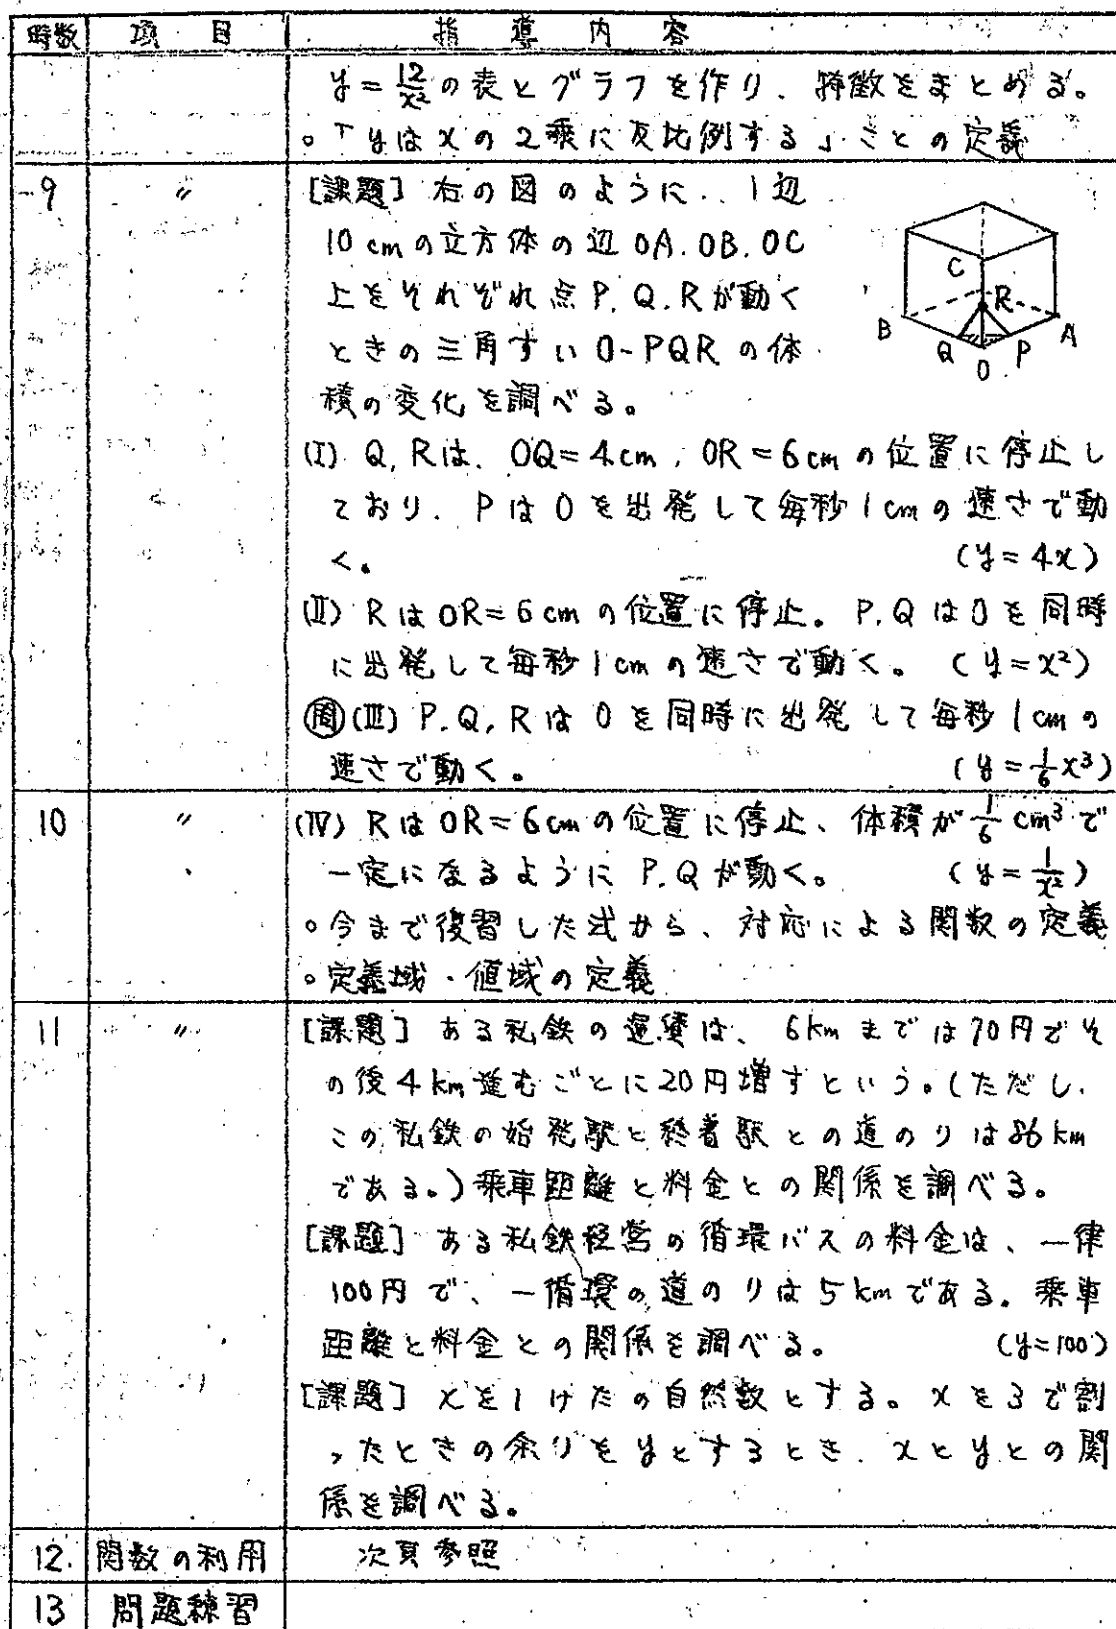 時数 項目 指導内容
y=12/x²の表とグラフを作り、特徴をまとめる。
○「yはxの2乗に反比例する」ことの定義
9 〃 [課題] 右の図のように、1辺
10cmの立方体の辺OA.OB.OC
上をそれぞれ点P.Q.Rが動く
ときの三角すいO-PQRの体
積の変化を調べる。
C
R
B
A
Q
P
O
(I) Q,Rは、OQ=4cm,OR=6cmの位置に停止し
ており、PはOを出発して毎秒1cmの速さで動
く。 (y=4x)
(II) RはOR=6cmの位置に停止。P.QはOを同時
に出発して毎秒1cmの速さで動く。 (y=x²)
問(III) P.Q,RはOを同時に出発して毎秒1cmの
速さで動く。 (y=1/6x³)
10 〃 (IV) RはOR=6cmの位置に停止、体積が1/6cm³で
一定になるようにP.Qが動く。 (y=1/x²)
○今まで復習した式から、対応による関数の定義
○定義域・値域の定義
11 〃 [課題] ある私鉄の運賃は、6kmまでは70円でそ
の後4km進むごとに20円増すという。(ただし、
この私鉄の始発駅と終着駅との道のりは36km
である。)乗車距離と料金との関係を調べる。
[課題] ある私鉄経営の循環バスの料金は、一律
100円で、一循環の道のりは5kmである。乗車
距離と料金との関係を調べる。 (y=100)
[課題] xを1けたの自然数とする。xを3で割
ったときの余りをyとするとき、xとyとの関
係を調べる。
12. 関数の利用 次頁参照
13 問題練習